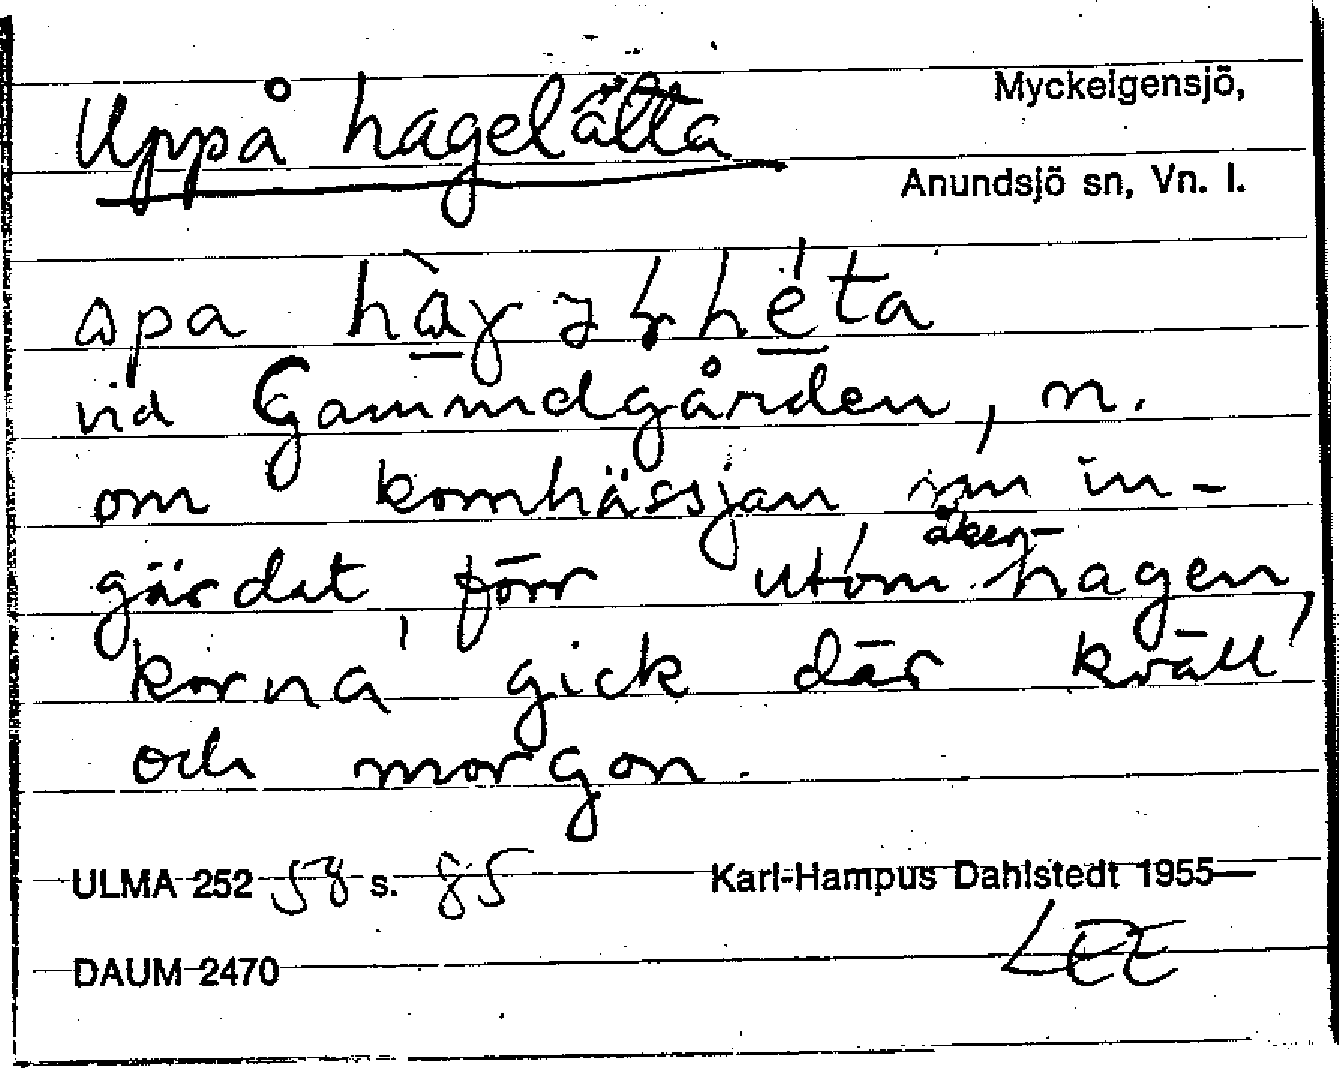 Uppå hagelätta
Myckelgensjö,
Anundsjö sn, Vn. l.
vid Gammelgården, n.
om kornhässjan in-
gärdat, förr utom åker-hagen,
korna gick där kväll
och morgon.
ULMA 252 58 s. 85
Karl-Hampus Dahlstedt 1955—
LEE
DAUM 2470